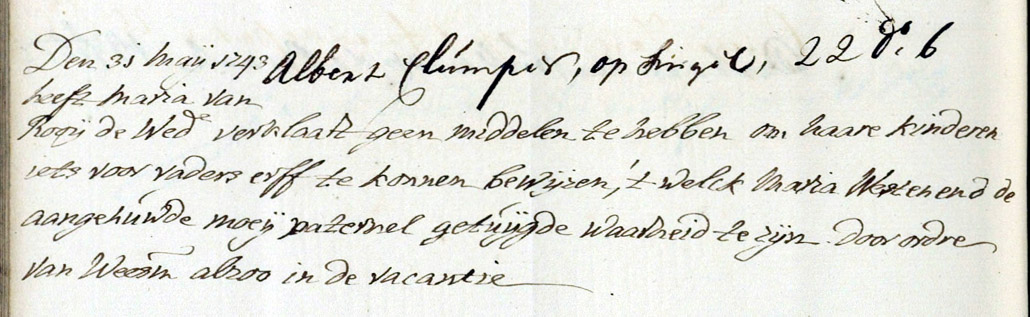 Albert Clumper, op Singel, 22 do. 6
Den 31 Maÿ 1743
heeft Maria van
Rooÿ de Wede verklaart geen middelen te hebben om haare kinderen
iets voor vaders erff te konnen bewÿzen, 't welck Maria Westenend de
aangehuwde moeÿ paternel getuÿgde waarheid te zÿn door ordre
van Weesm alzoo in de vacantie